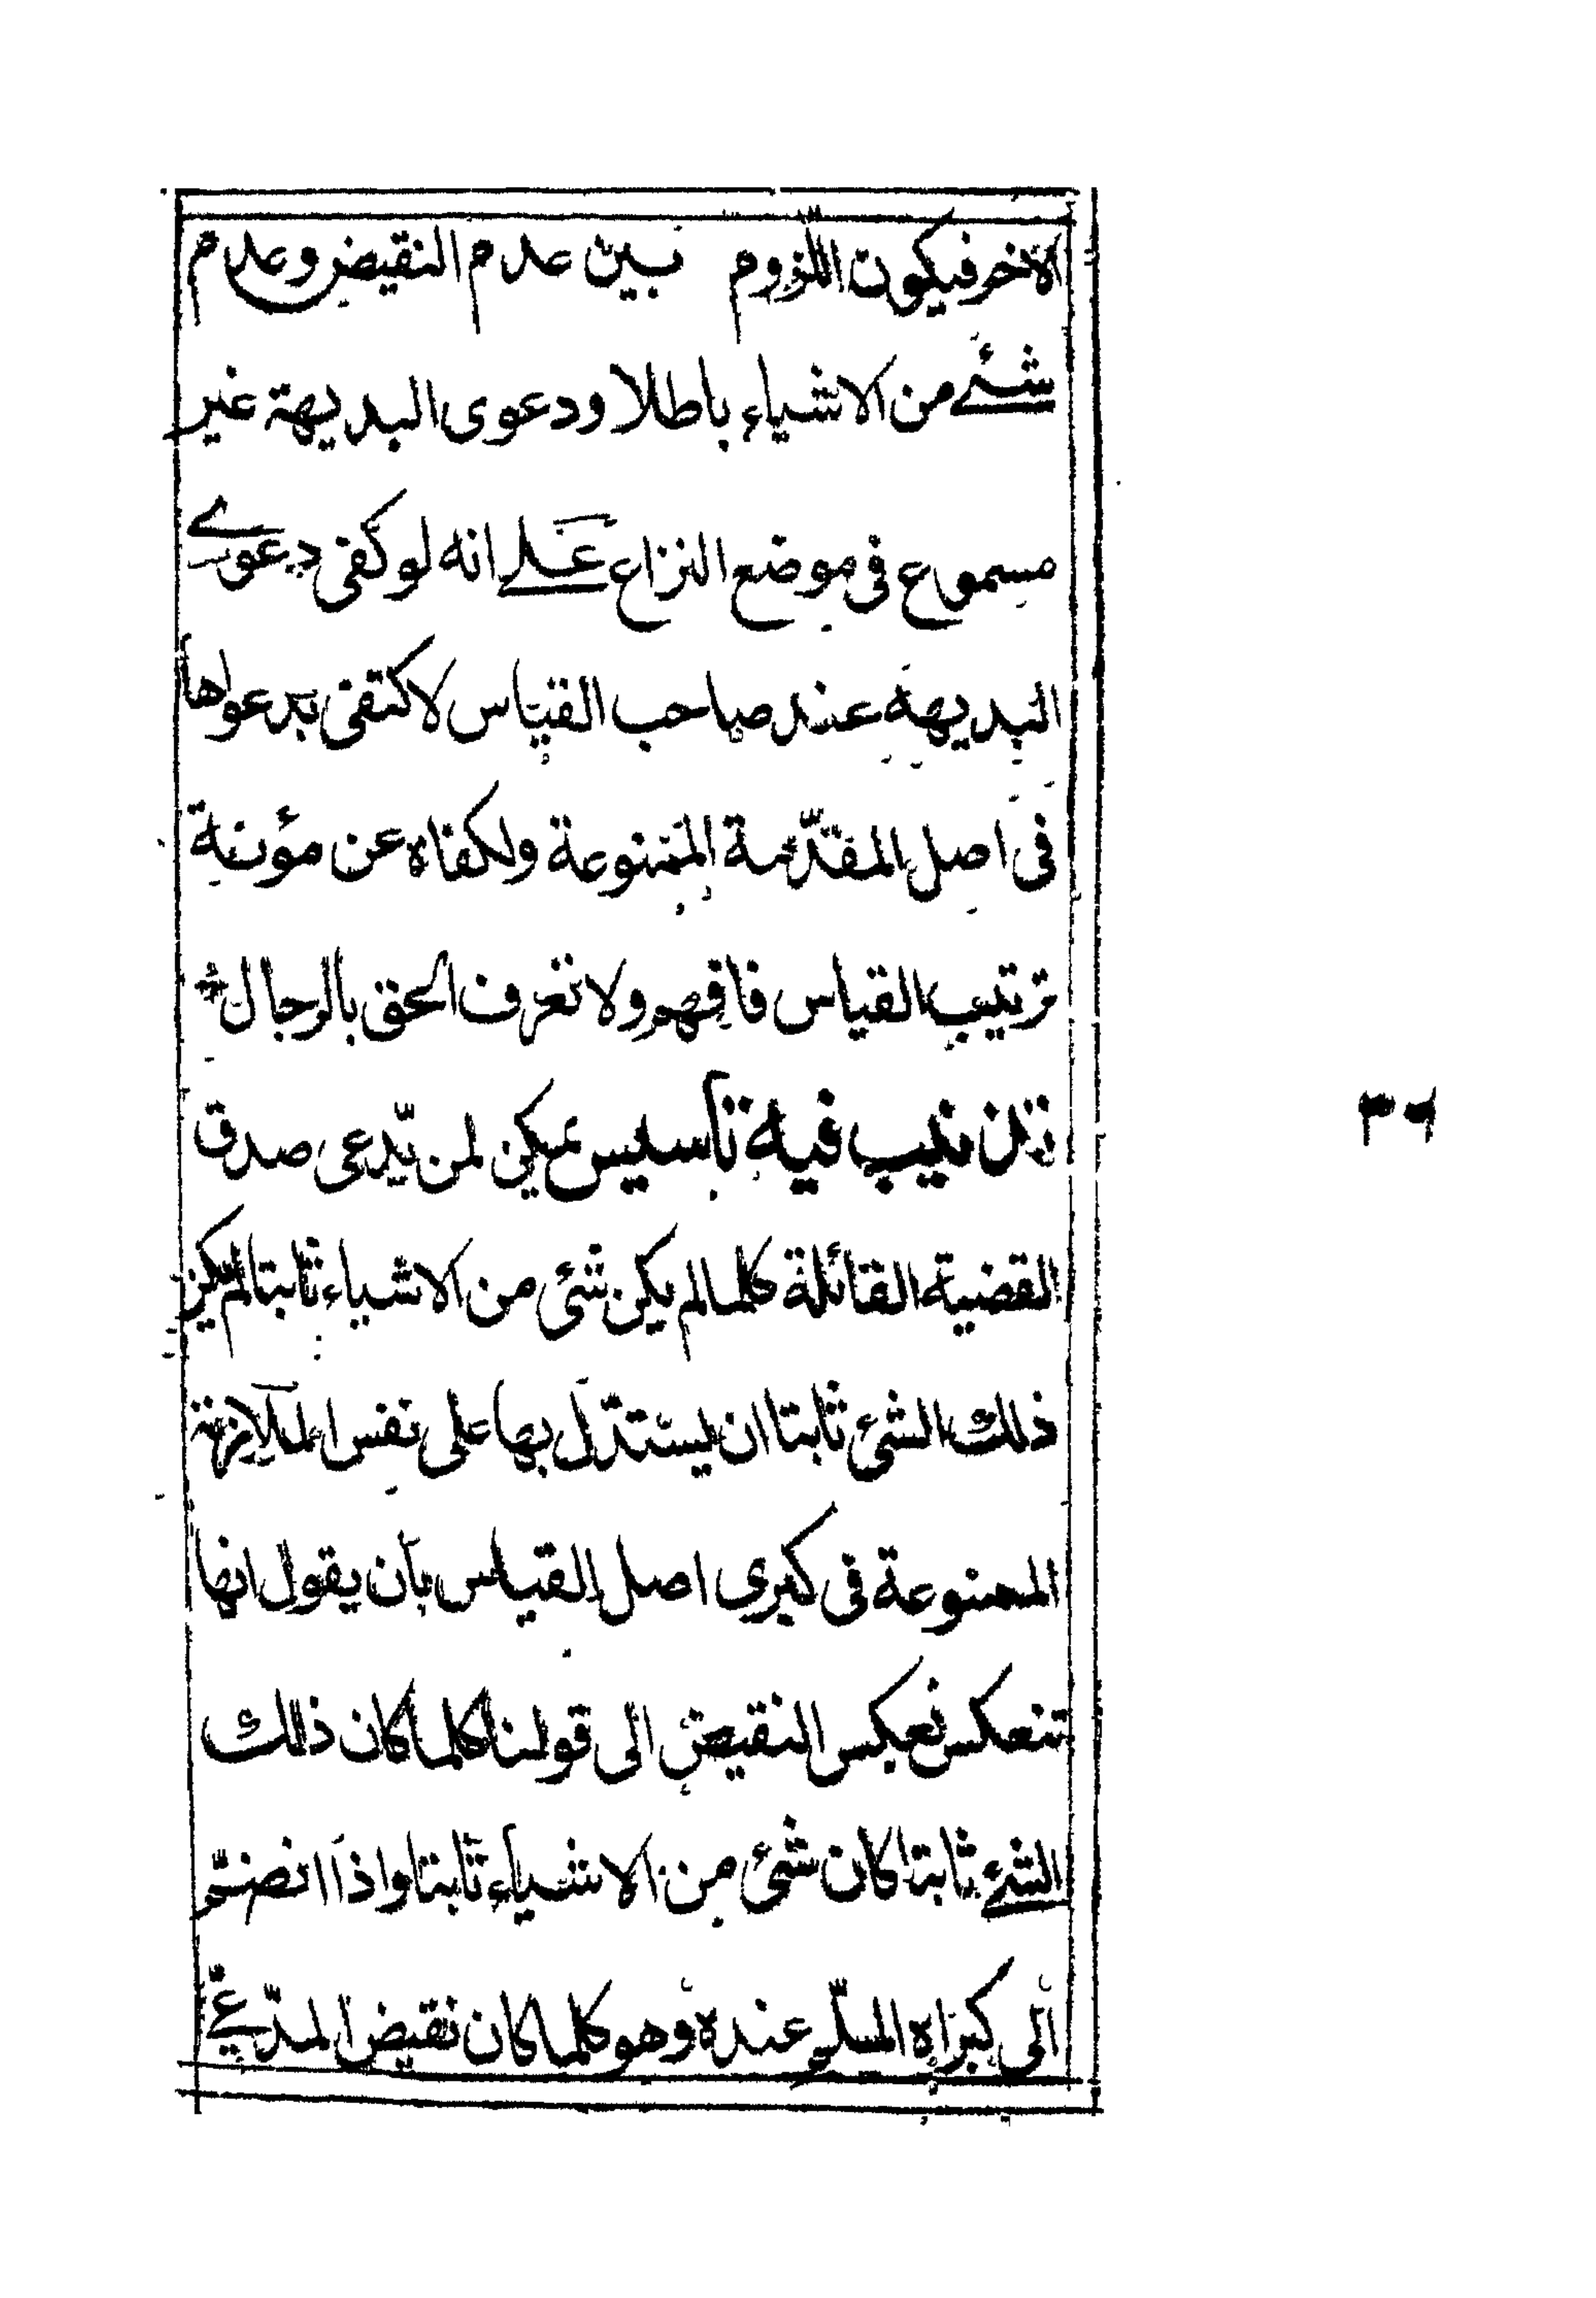 الآخر فيكون اللزوم بين عدم النقيض وعدم
شئ من الاشياء باطلا ودعوى البديهة غير
مسموع فى موضع النزاع على انه لو كفى دعوى
البديهة عند صاحب القياس لاكتفى بدعواها
فى اصل المقدّمة الممنوعة ولكفاه عن مؤنة
ترتيب القياس فافهم ولا تعرف الحق بالرجال
تذنيب فيه تأسيس يمكن لمن يّدعى صدق
القضية القائلة كلما لم يكن شئ من الاشياء ثابتا لم يكن
ذلك الشئ ثابتا ان يستدّل بها على نفس الملازمة
الممنوعة فى كبرى اصل القياس بأن يقول انها
تنعكس بعكس النقيض الى قولنا كلما كان ذلك
الشئ ثابتا كان شئ من الاشياء ثابتا واذا انضمّ
الى كبراه المسلّم عنده وهو كلما كان نقيض المدّعى
٣٦